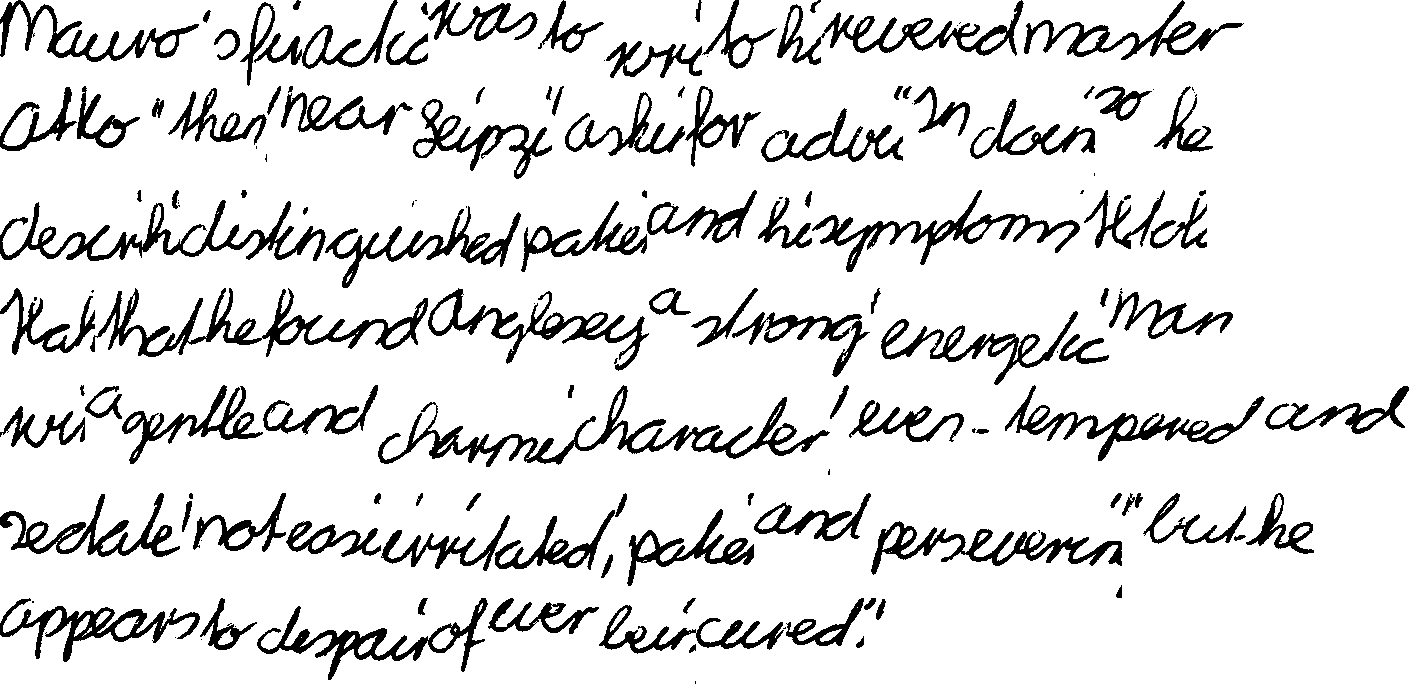 Mauro's firacti was to wri to hi revered master
at Ko" then' near Leipzi' aski for advi" In doin' so he
descri hi distinguished patie and hi symptoms
that he found Anglesey a strong' energetic' man
wi a gentle and charmi character' even-tempered and
sedate' not easi irritated, patie and perseverin," but he
appears to despair of ever bein cured".'